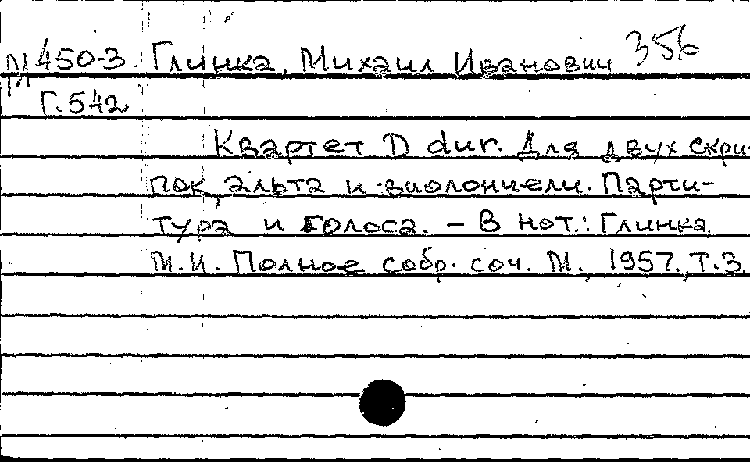 М 450-3 Глинка, Михаил Иванович 356
Г.542
Квартет D dur. Для двух скри-
пок, альта и виолончели. Парти-
тура и голоса. – В нот.: Глинка
М.И. Полное собр. соч. М., 1957, т.3.